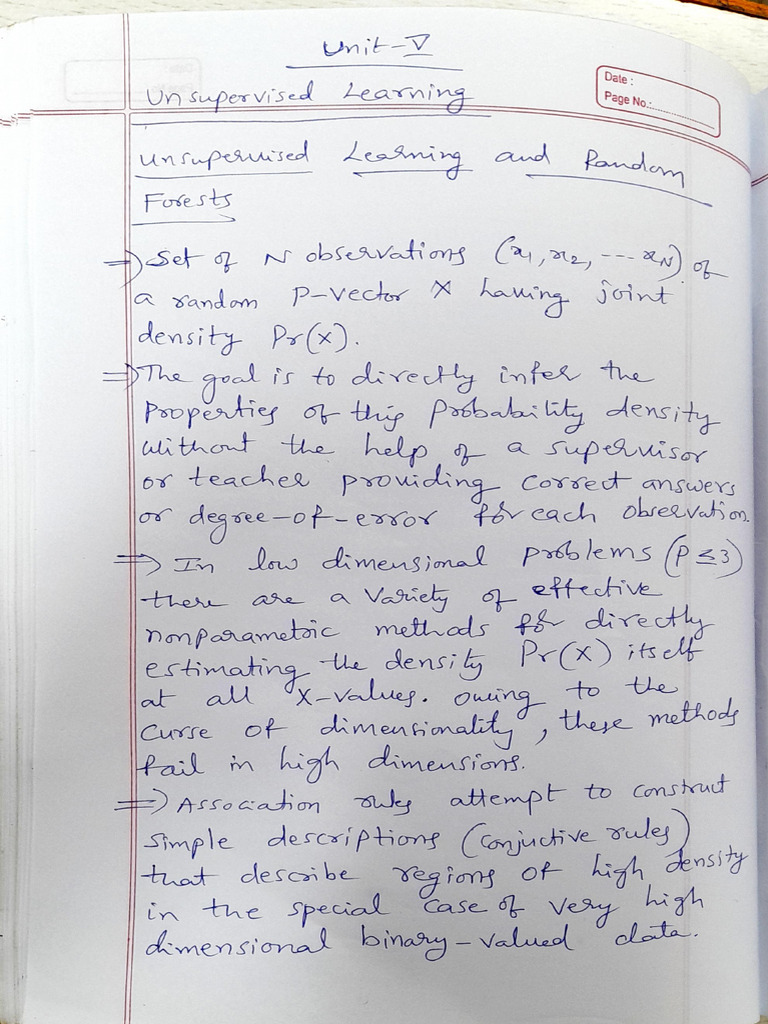 Unit-V
Date :
Page No.:
Unsupervised Learning
Unsupervised Learning and Random
Forests
=> Set of N observations (x1, x2, --- xN) of
a random p-vector X having joint
density Pr(X).
=> The goal is to directly infer the
Properties of this Probability density
without the help of a supervisor
or teacher providing correct answers
or degree-of-error for each observation.
=> In low dimensional problems (P ≤ 3)
there are a variety of effective
nonparametric methods for directly
estimating the density Pr(X) itself
at all X-values. owing to the
curse of dimensionality, these methods
fail in high dimensions.
=> Association rules attempt to construct
simple descriptions (conjuctive rules)
that describe regions of high density
in the special case of very high
dimensional binary-valued data.